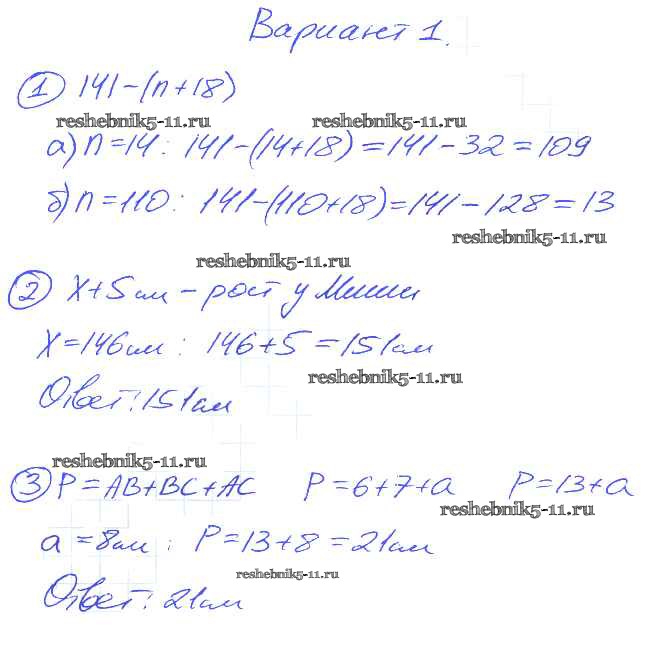 Вариант 1.
① 141-(n+18)
reshebnik5-11.ru reshebnik5-11.ru
а) n=14: 141-(14+18)=141-32=109
б) n=110: 141-(110+18)=141-128=13
reshebnik5-11.ru
reshebnik5-11.ru
② x+5см - рост у Миши
x=146см: 146+5=151см
reshebnik5-11.ru
Ответ: 151см
reshebnik5-11.ru
③ P=AB+BC+AC P=6+7+a P=13+a
reshebnik5-11.ru
a=8см: P=13+8=21см
reshebnik5-11.ru
Ответ: 21см